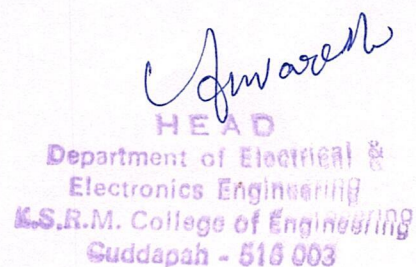 HEAD
Department of Electrical &
Electronics Engineering
K.S.R.M. College of Engineering
Cuddapah - 516 003